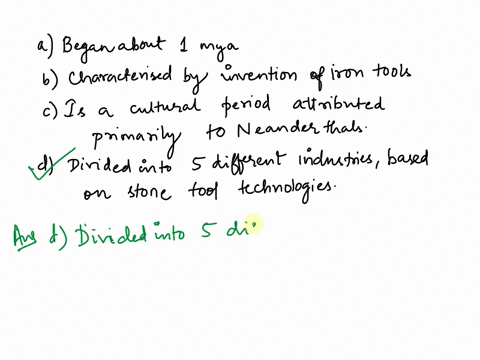 a) Began about 1 mya
b) Characterised by invention of iron tools
c) Is a cultural period attributed
primarily to Neanderthals.
d) Divided into 5 different industries, based
on stone tool technologies.
Ans d) Divided into 5 di